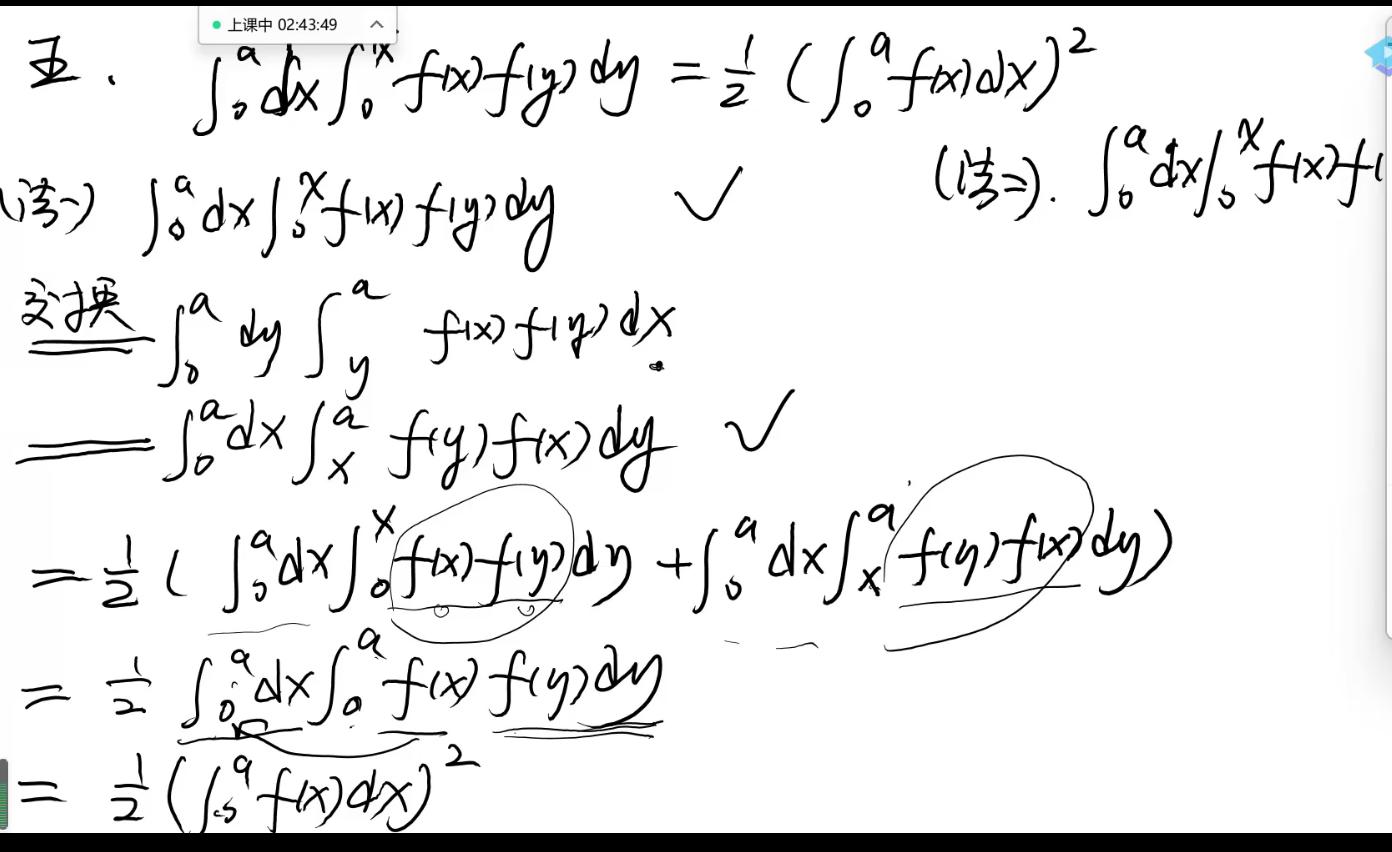 上课中 02:43:49
五. ∫₀ᵃ dx ∫₀ˣ f(x) f(y) dy = 1/2 (∫₀ᵃ f(x) dx)²
(法一) ∫₀ᵃ dx ∫₀ˣ f(x) f(y) dy ✓
(法二). ∫₀ᵃ dx ∫₀ˣ f(x) f(
交换 ∫₀ᵃ dy ∫_y^a f(x) f(y) dx
= ∫₀ᵃ dx ∫_x^a f(y) f(x) dy ✓
= 1/2 ( ∫₀ᵃ dx ∫₀ˣ f(x) f(y) dy + ∫₀ᵃ dx ∫_x^a f(y) f(x) dy )
= 1/2 ∫₀ᵃ dx ∫₀ᵃ f(x) f(y) dy
= 1/2 (∫₀ᵃ f(x) dx)²